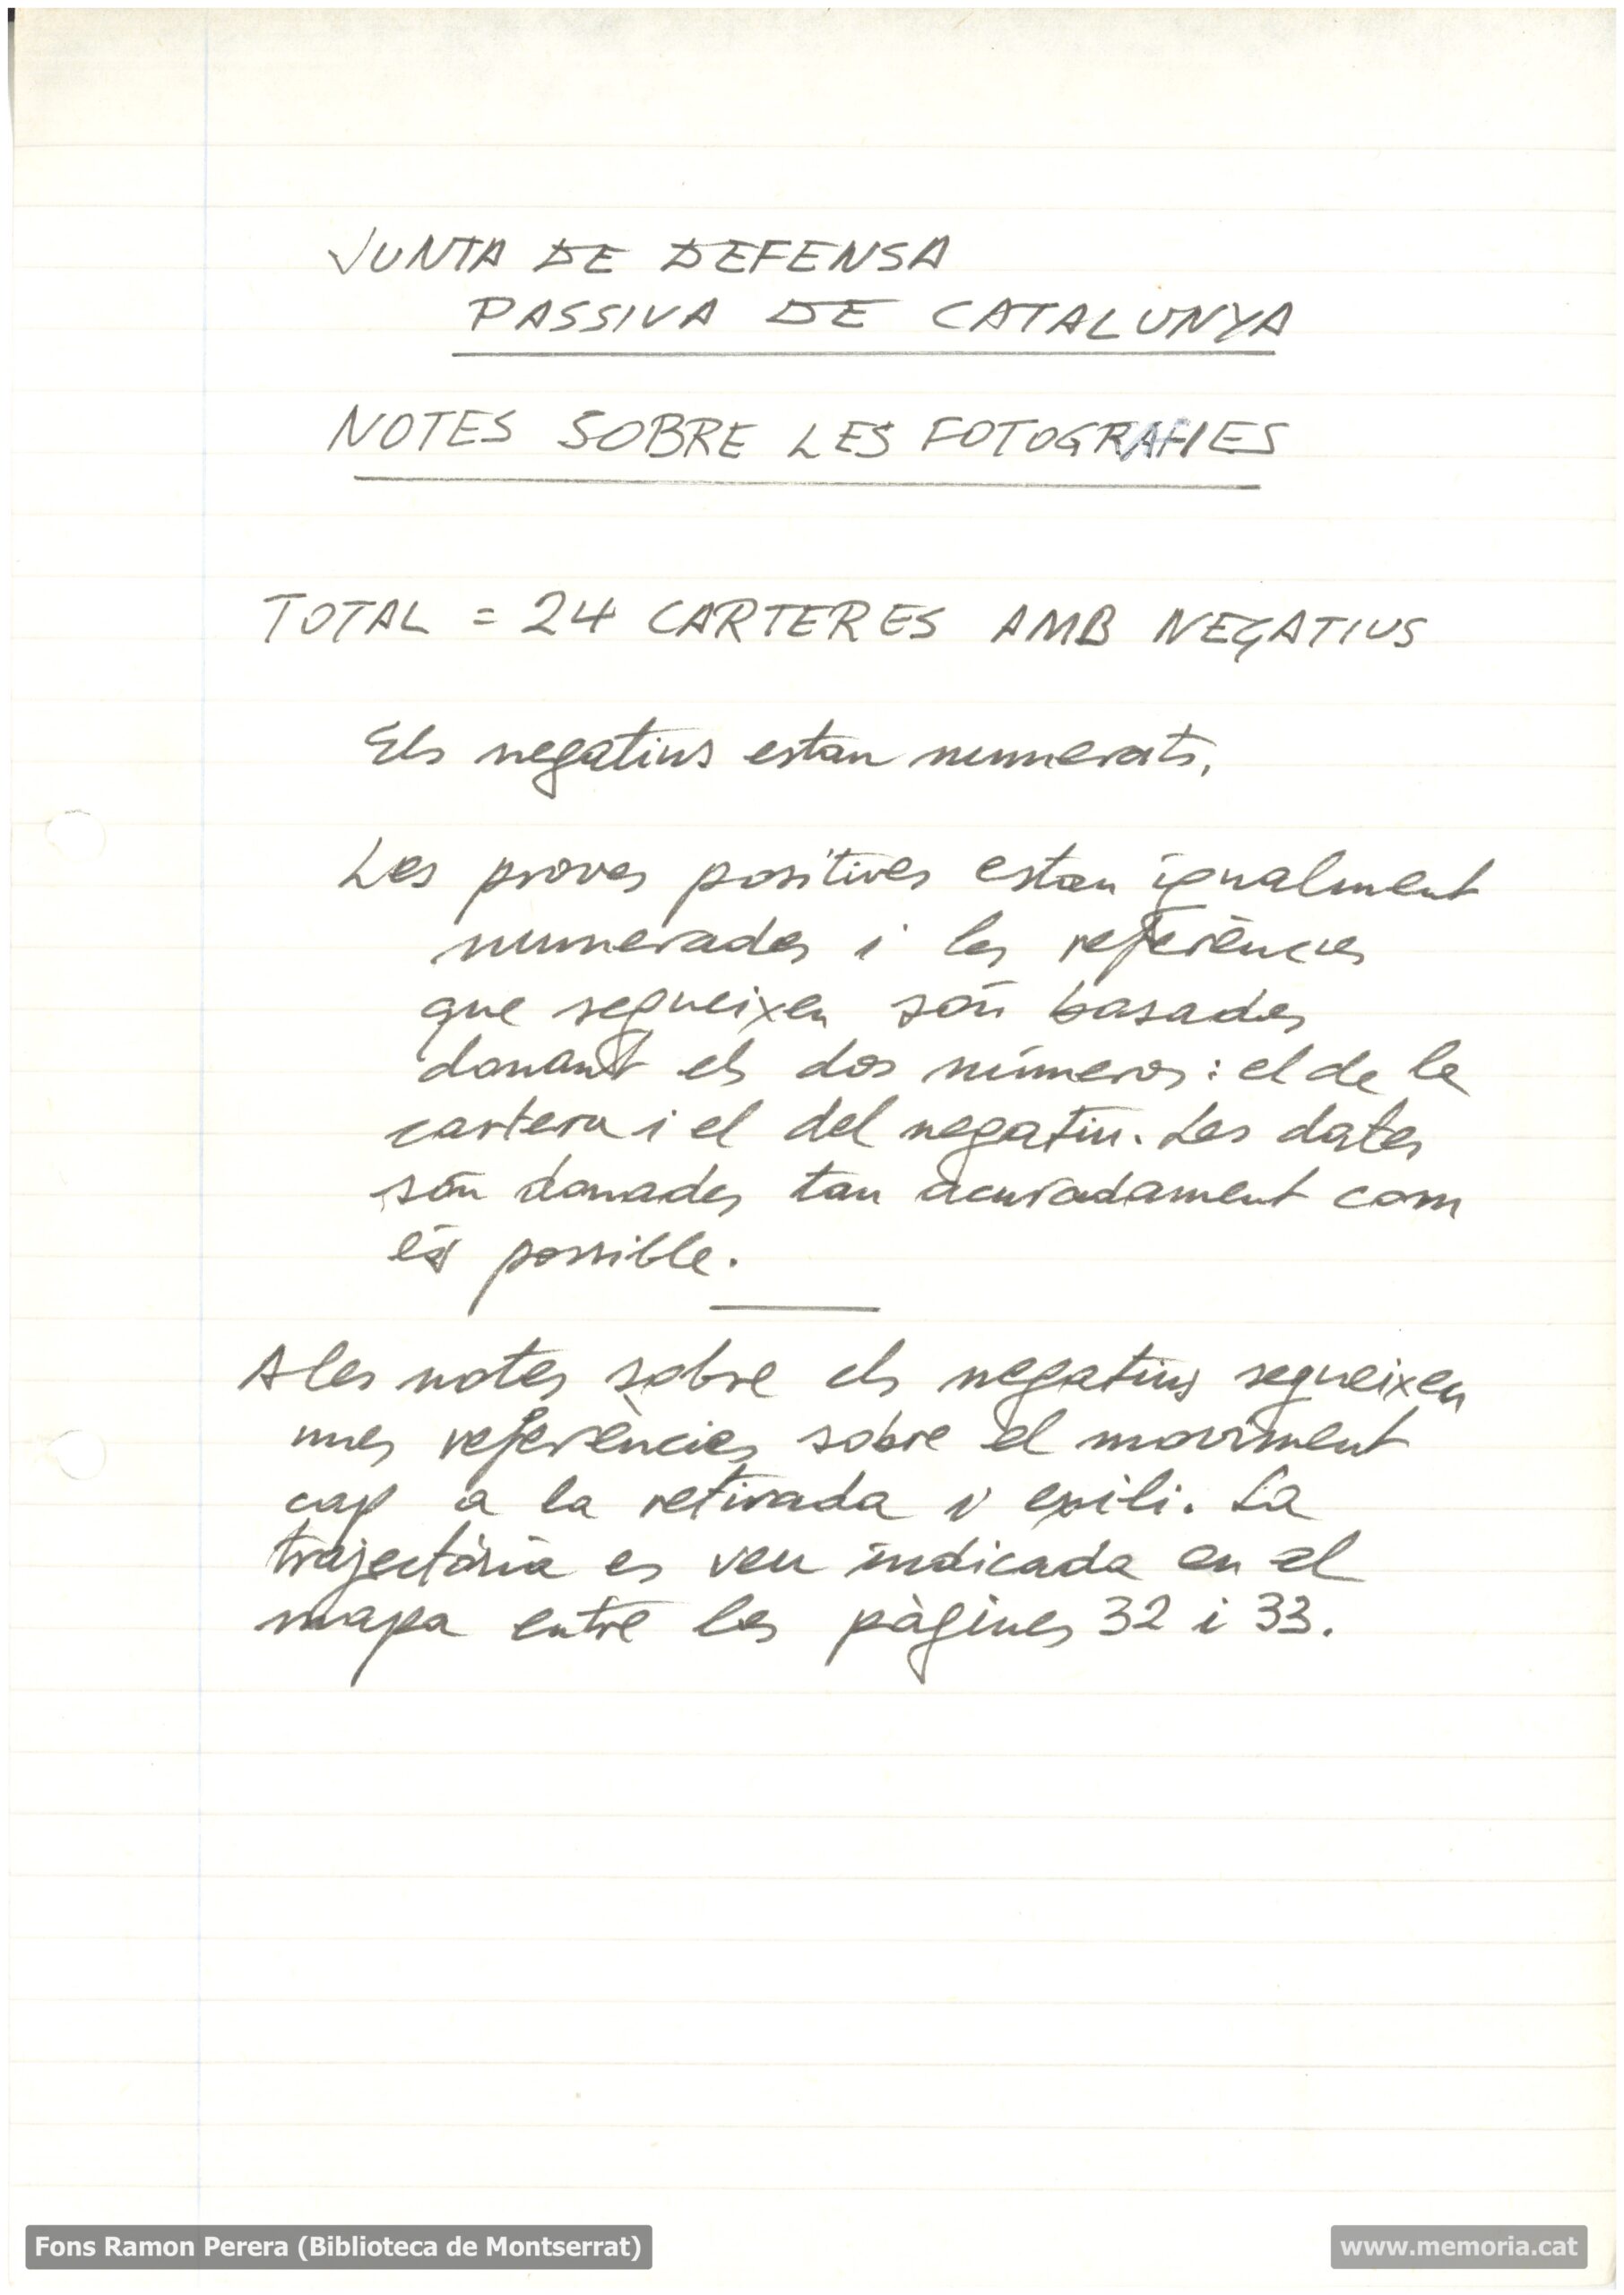 JUNTA DE DEFENSA
PASSIVA DE CATALUNYA
NOTES SOBRE LES FOTOGRAFIES
TOTAL = 24 CARTERES AMB NEGATIUS
Els negatius estan numerats.
Les proves positives estan igualment
numerades i les referències
que segueixen són basades
donant els dos números: el de la
cartera i el del negatiu. Les dates
són donades tan acuradament com
és possible.
A les notes sobre els negatius segueixen
unes referències sobre el moviment
cap a la retirada i exili. La
trajectòria es veu indicada en el
mapa entre les pàgines 32 i 33.
Fons Ramon Perera (Biblioteca de Montserrat)
www.memoria.cat